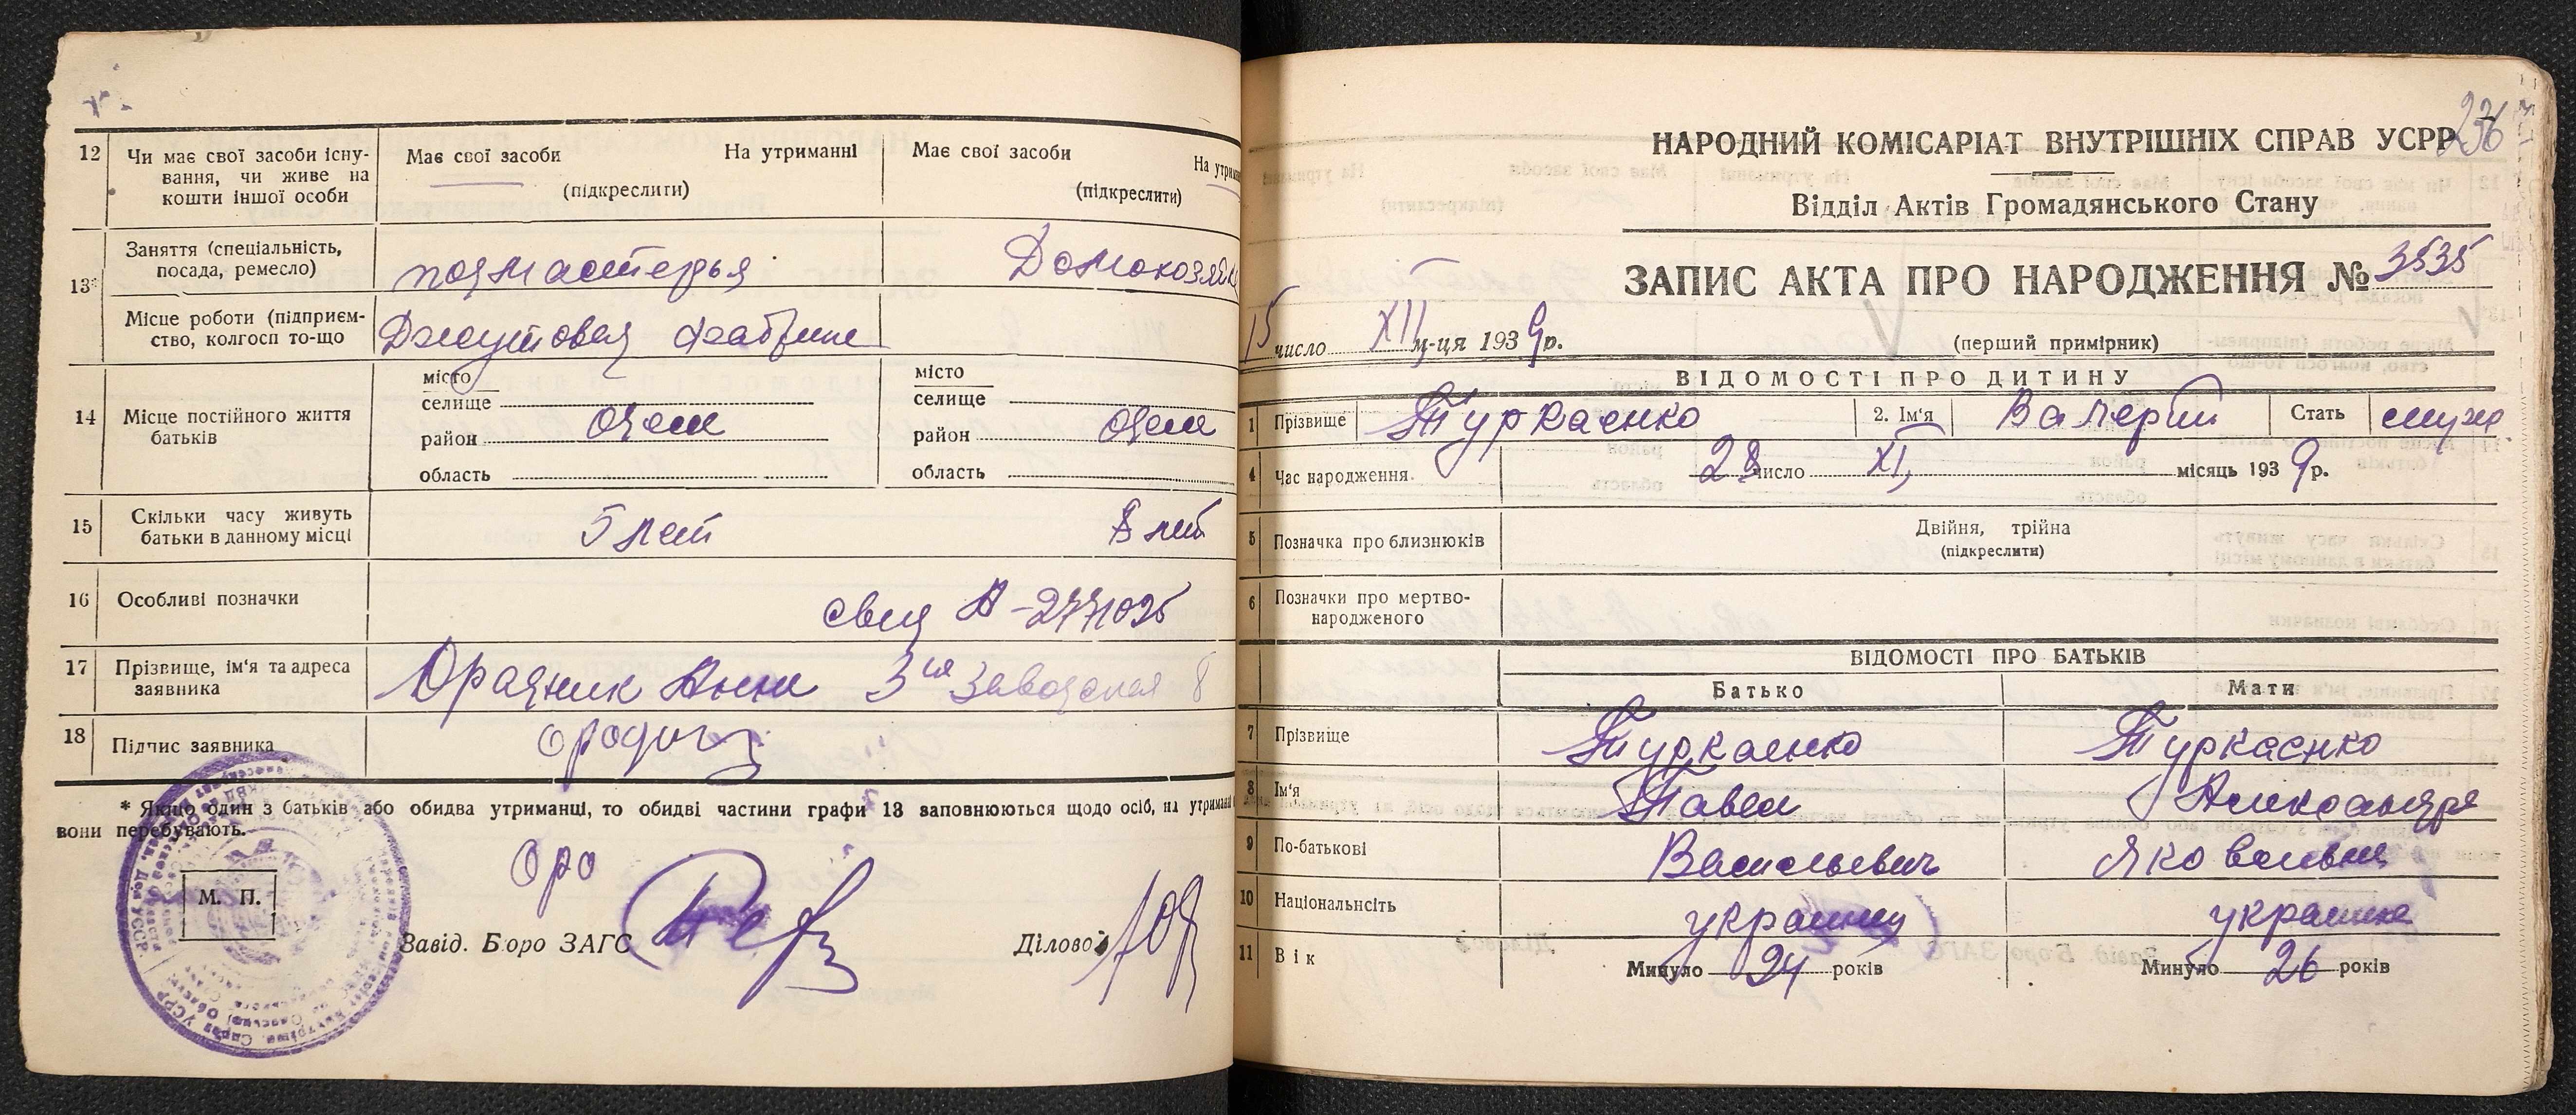 12 Чи має свої засоби існування, чи живе на кошти іншої особи
Має свої засоби На утриманні (підкреслити)
Має свої засоби На утрим (підкреслити)
13* Заняття (спеціальність, посада, ремесло)
подмастерья
Домохозяйка
Місце роботи (підприємство, колгосп то-що
Джутовая фабрика
14 Місце постійного життя батьків
місто
селище
район Одеса
область
місто
селище
район Одеса
область
15 Скільки часу живуть батьки в данному місці
5 лет
8 лет
16 Особливі позначки
свид А-2771025
17 Прізвище, ім'я та адреса заявника
Драдник Анна 3ья Заводская 8
18 Підпис заявника
* Якщо один з батьків або обидва утриманці, то обидві частини графи 13 заповнюються щодо осіб, на утриманні
вони перебувають.
М. П.
Завід. Бюро ЗАГС
Діловод
236
НАРОДНИЙ КОМІСАРІАТ ВНУТРІШНІХ СПРАВ УСРР
Відділ Актів Громадянського Стану
ЗАПИС АКТА ПРО НАРОДЖЕННЯ № 3535
15 число XII м-ця 1939 р.
(перший примірник)
ВІДОМОСТІ ПРО ДИТИНУ
1 Прізвище Туркаенко 2. Ім'я Валерий Стать муж
4 Час народження 28 число XI, місяць 1939 р.
5 Позначка про близнюків
Двійня, трійна
(підкреслити)
6 Позначки про мертвонародженого
ВІДОМОСТІ ПРО БАТЬКІВ
Батько Мати
7 Прізвище Туркаенко Туркаенко
8 Ім'я Павел Александра
9 По-батькові Васильевич Яковлевна
10 Національнсіть украинец украинка
11 Вік Минуло 24 років Минуло 26 років